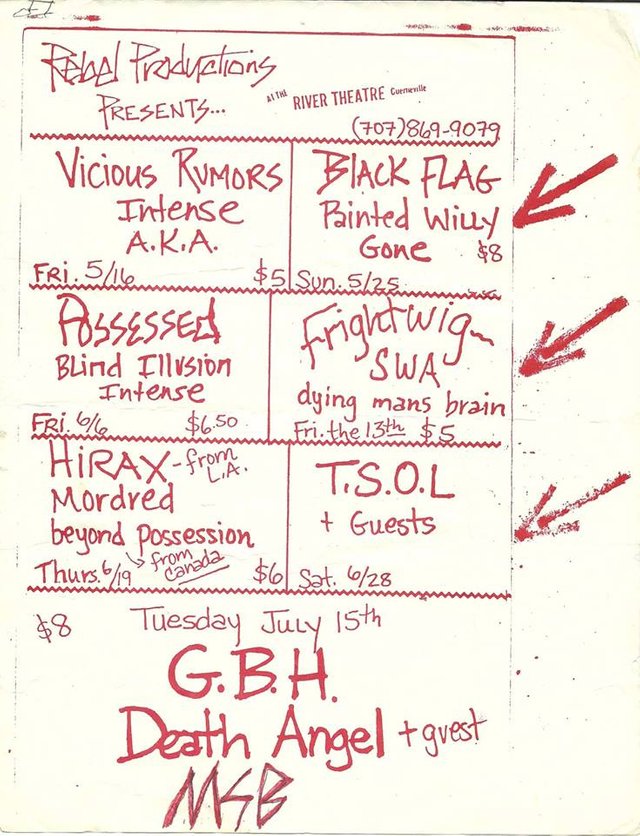 Rebel Productions
PRESENTS...
AT THE RIVER THEATRE Guerneville
(707)869-9079
Vicious RUMORS
Intense
A.K.A.
FRI. 5/16 $5
BlACK FLAG
Painted Willy
Gone $8
Sun. 5/25
POSSESSEd
BLind Illusion
Intense
FRI. 6/6 $6.50
Frightwig
SWA
dying mans brain
Fri. the 13th $5
HiRAX - from L.A.
Mordred
beyond Possession
from Canada
Thurs. 6/19 $6
T.S.O.L
+ Guests
Sat. 6/28
$8 Tuesday July 15th
G.B.H.
Death Angel + guest
MSB